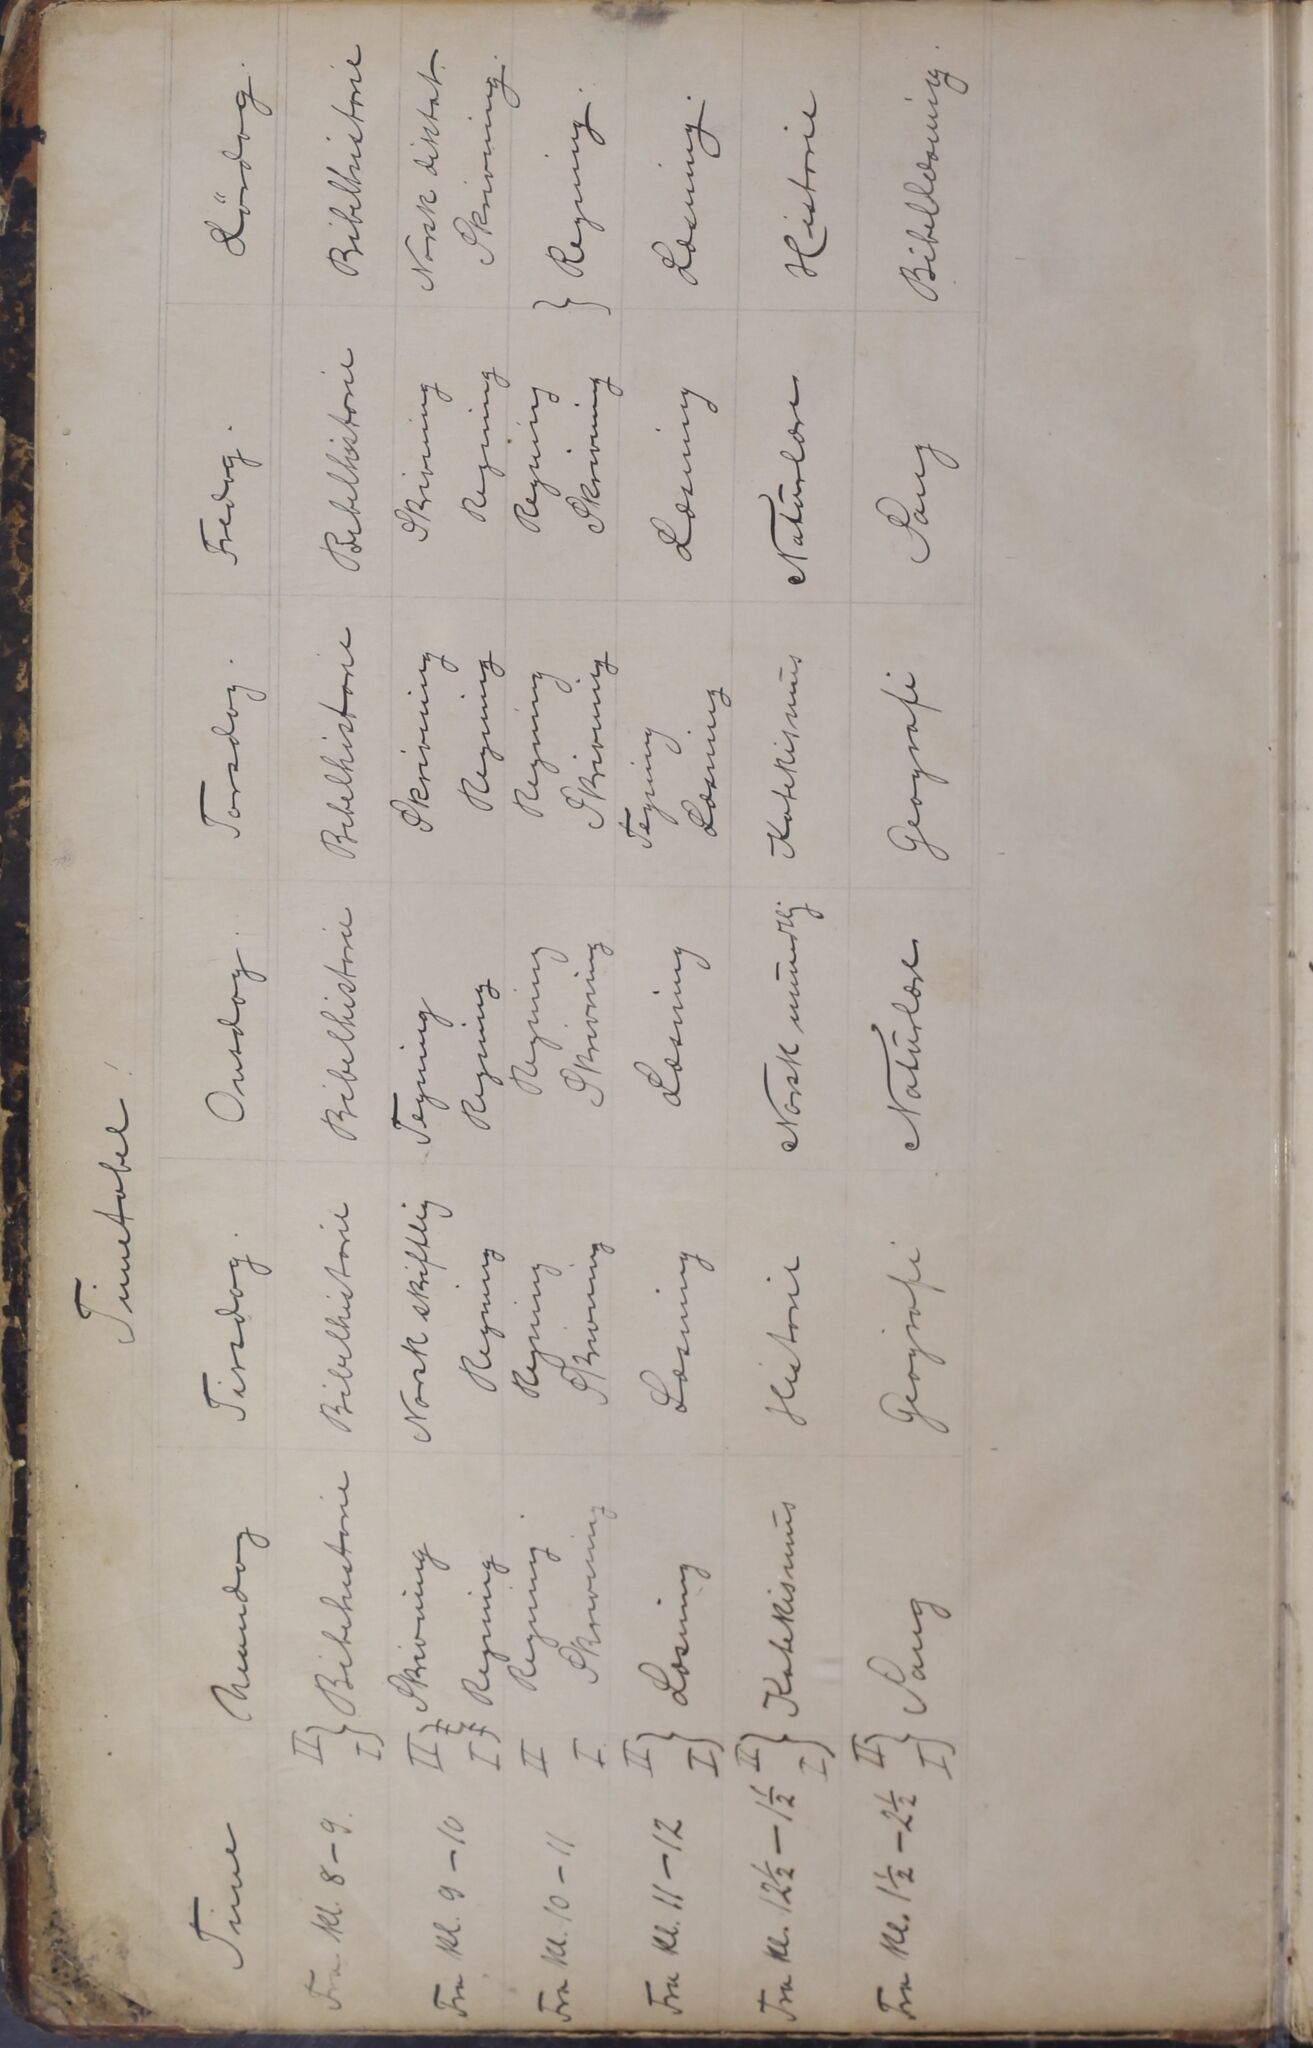 Timetabel!
Time Mandag Tirsdag. Onsdag. Torsdag. Fredag. Lördag.
Fra Kl. 8 – 9. II) I) } Bibelhistorie Bibelhistorie Bibelhistorie Bibelhistorie Bibelhistorie Bibelhistorie
Fra Kl. 9 – 10 II) Skrivning Norsk skiftlig Tegning Skrivning Skrivning Norsk diktat.
I) Regning Regning Regning Regning Regning Skrivning.
Fra Kl. 10 – 11 II Regning. Regning Regning Regning Regning } Regning.
I Skrivning Skrivning Skrivning Skrivning Skrivning
Fra Kl. 11 – 12 II) I) } Læsning Læsning Læsning Tegning Læsning Læsning.
Læsning
Fra Kl. 12½ – 1½ II) I) } Katekismus Historie Norsk mundtlig Katekismus Naturlære Historie
Fra Kl. 1½ – 2½ II) I) } Sang Geografi Naturlære Geografi Sang Bibellæsning.